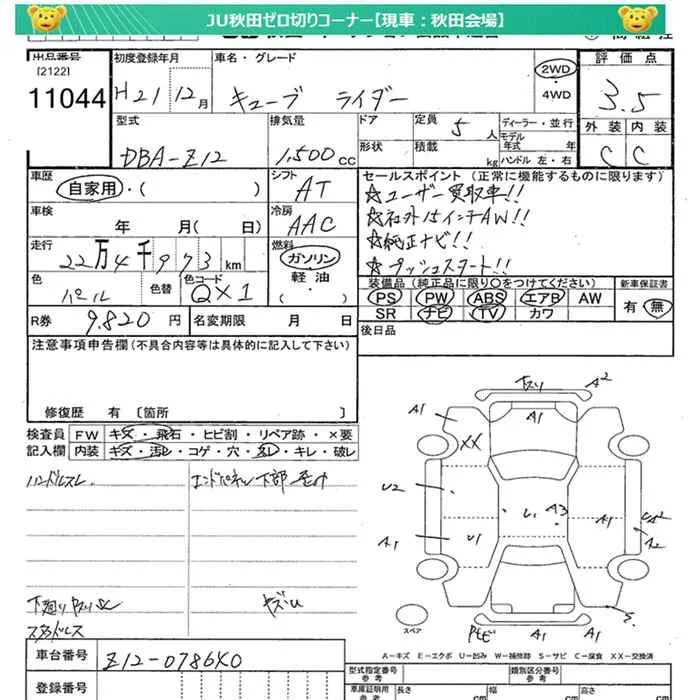 JU秋田ゼロ切りコーナー【現車：秋田会場】
出品番号 初度登録年月 車名・グレード 2WD 評価点
[2122]
11044 H21 12月 キューブ ライダー ・ 4WD 3.5
型式 排気量 ドア 定員 5人 ディーラー・並行 外装 内装
モデル年式 年
DBA-Z12 1,500cc 形状 積載 kg ハンドル 左・右 C C
車歴 シフト セールスポイント(正常に機能するものに限ります)
自家用・( ) AT ☆ユーザー買取車!!
車検 冷房 ☆社外15インチAW!!
年 月( 日) AAC ☆純正ナビ!!
走行 燃料 ☆プッシュスタート!!
22万4千973km ガソリン
・
軽油
・
( )
色 色替 色コード 装備品(純正品に限り〇をつけてください) 新車保証書
パール QX1 PS PW ABS エアB AW 有・無
SR ナビ TV カワ
R券 9,820円 名変期限 月 日 後日品
注意事項申告欄(不具合内容等は具体的に記入して下さい)
修復歴 有 〔箇所 〕
検査員 FW キズ・飛石・ヒビ割・リペア跡・×要
記入欄 内装 キズ・汚レ・コゲ・穴・スレ・キレ・破レ
ハンドルスレ エンドパネル下部
下廻りサビSC キズU
スタッドレス
A2
A1 A1
XX
U2 U1 A3 A1
A1 U1 A2
スペア A1 A1
A-キズ E-エクボ U-凹み W-補修跡 S-サビ C-腐食 XX-交換済
車台番号 Z12-0786X0
登録番号
型式指定番号 参考 類別区分番号 参考
車庫証明用 参考 長さ cm 幅 cm 高さ cm